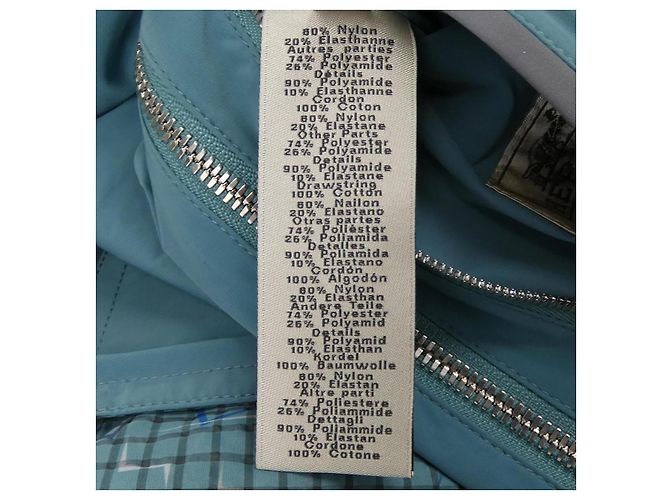 80% Nylon
20% Elasthanne
Autres parties
74% Polyester
26% Polyamide
Détails
90% Polyamide
10% Elasthanne
Cordon
100% Coton
80% Nylon
20% Elastane
Other Parts
74% Polyester
26% Polyamide
Details
90% Polyamide
10% Elastane
Drawstring
100% Cotton
80% Nailon
20% Elastano
Otras partes
74% Poliéster
26% Poliamida
Detalles
90% Poliamida
10% Elastano
Cordón
100% Algodón
80% Nylon
20% Elasthan
Andere Teile
74% Polyester
26% Polyamid
Details
90% Polyamid
10% Elasthan
Kordel
100% Baumwolle
80% Nylon
20% Elastan
Altre parti
74% Poliestere
26% Poliammide
Dettagli
90% Poliammide
10% Elastan
Cordone
100% Cotone